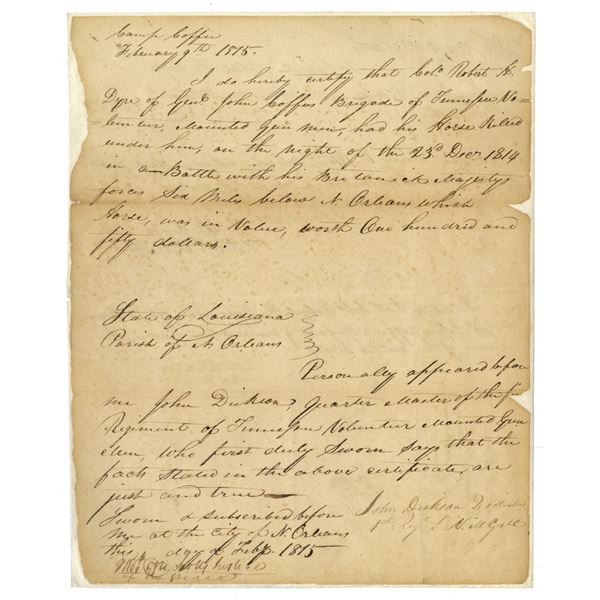 Camp Coffee
February 9th 1815.
I do hereby certify that Colo. Robert H.
Dyre of Genl. John Coffees Brigade of Tennessee Vo-
=lenteer, Mounted Gun men, had his Horse Killed
under him, on the night of the 23d. Decr. 1814
in a Battle with his Britanick Majestys
forces Six Miles below N Orleans which
Horse, was in Value, worth One hundred and
fifty dollars.
State of Louisiana
Parish of N Orleans
Personally appeared before
me John Dickson, Quarter Master of the
Regiment of Tennessee Volunteer Mounted Gun
Men, who first duly Sworn says that the
facts Stated in the above certificate, are
just and true
Sworn & subscribed before
me at the City of N. Orleans
this day of Feby. 1815
John Dickson
1st Regt. T
of the peace